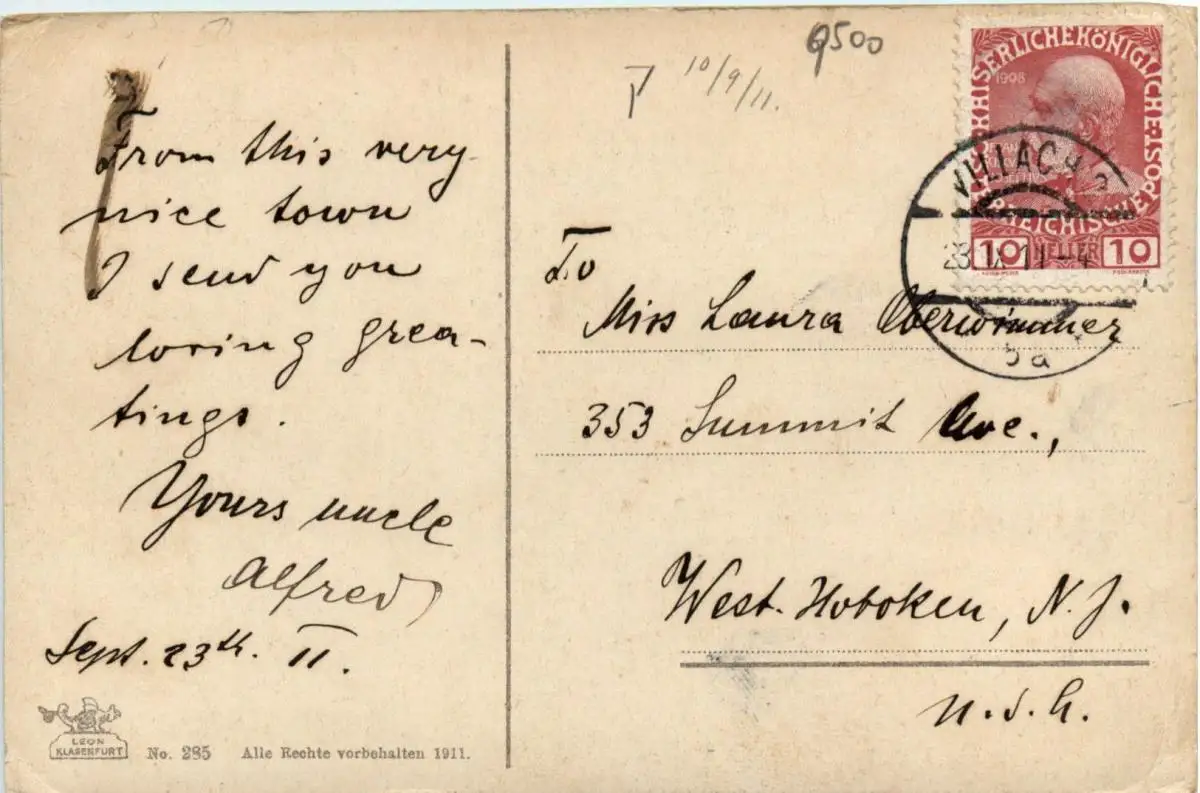 From this very
nice town
I send you
loving grea-
tings.
Yours uncle
Alfred
Sept. 23th. 11.
LEON
KLAGENFURT
No. 285 Alle Rechte vorbehalten 1911.
10/9/11.
6500
KAISERLICHEKÖNIGLICHE
ÖSTERREICHISCHE POST
1908
10 HELLER 10
VILLACH 2
23 IX 11-4
5a
To
Miss Laura Oberwimmer
353 Summit Ave.,
West. Hoboken, N. J.
U.S.A.